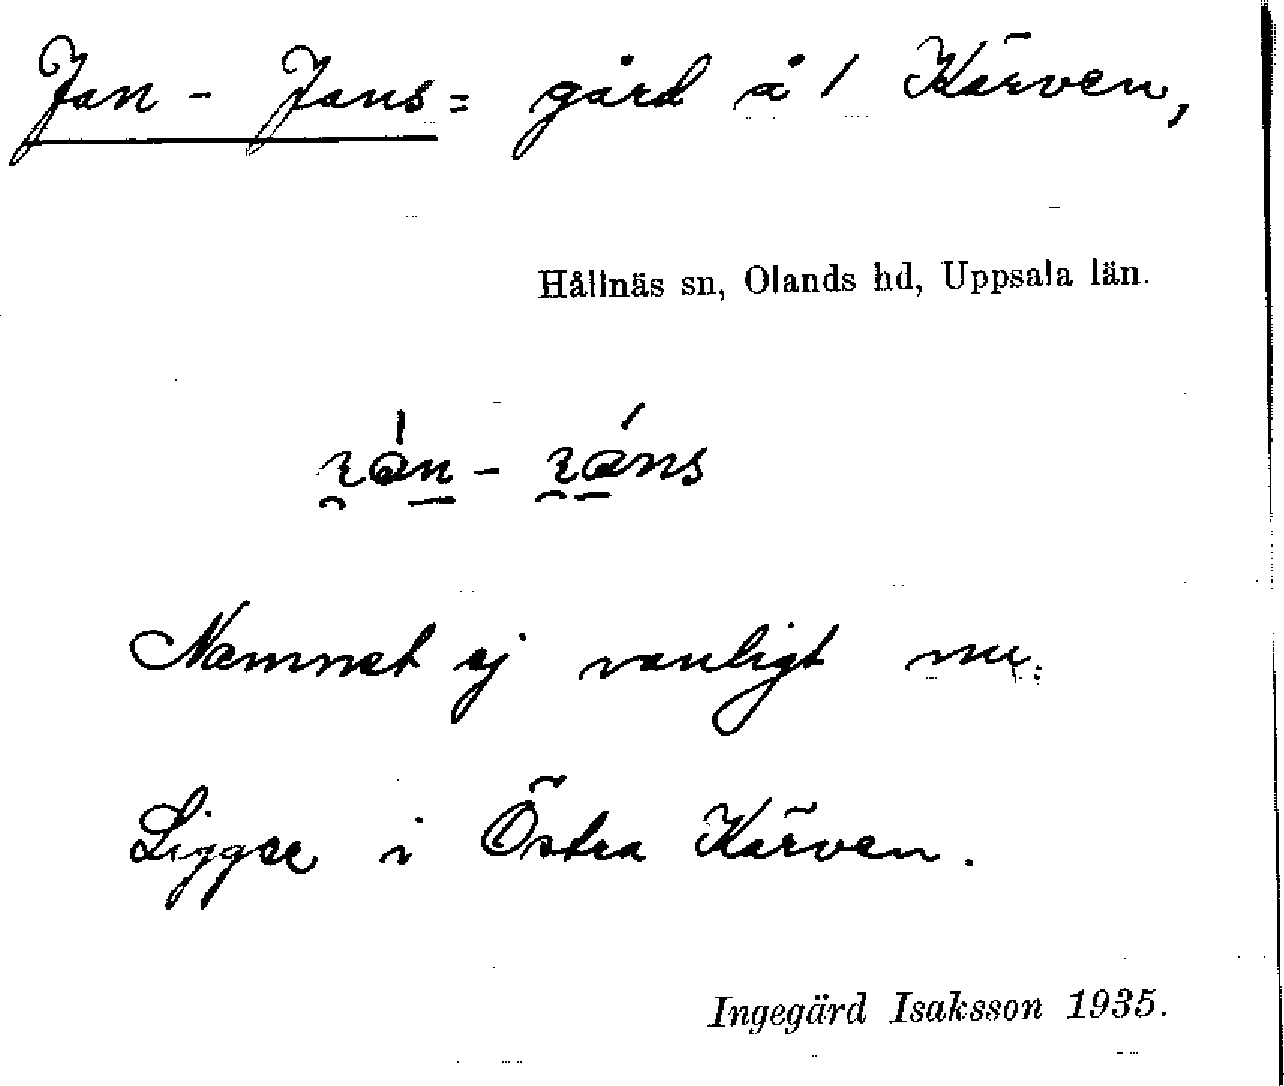 Jan - Jans = gård å 1 Kärven,
Hållnäs sn, Olands hd, Uppsala län.
Namnet ej vanligt nu.
Ligger i Östra Kärven.
Ingegärd Isaksson 1935.